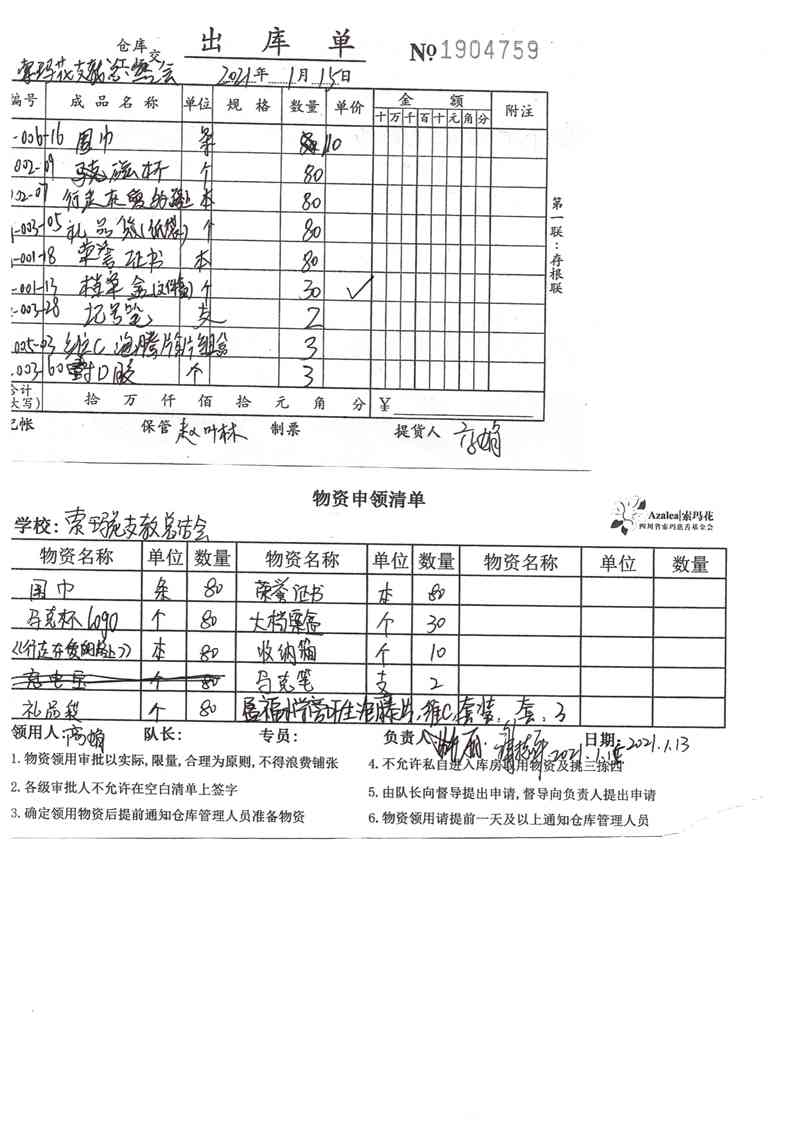 仓库交 出库单 №1904759
索玛花支教总结会 2021年1月15日
编号 成品名称 单位 规格 数量 单价 金额 附注
十万千百十元角分
-006-16 围巾 条 110
002-09 马克磁杯 个 80
002-07 行走在爱的路上 本 80
-003-05 礼品袋(纸袋) 个 80
-001-18 荣誉证书 本 80
-001-13 档案盒(文件盒) 个 30 ✓
-003-28 记号笔 支 2
005-03 维C 泡腾片 3
.003-60 封口胶 个 3
合计
大写) 拾 万 仟 佰 拾 元 角 分 ¥
记帐 保管 赵叶林 制票 提货人 高娟
第一联:存根联
物资申领清单
Azalea|索玛花
四川省索玛慈善基金会
学校: 索玛花支教总结会
物资名称 单位 数量 物资名称 单位 数量 物资名称 单位 数量
围巾 条 80 荣誉证书 本 80
马克杯logo 个 80 大档案盒 个 30
《行走在爱的路上》 本 80 收纳箱 个 10
充电宝 个 80 马克笔 支 2
礼品袋 个 80 维C套装 套 3
领用人: 高娟 队长: 专员: 负责人 日期: 2021.1.13
2021.1.15
1.物资领用审批以实际,限量,合理为原则,不得浪费铺张
2.各级审批人不允许在空白清单上签字
3.确定领用物资后提前通知仓库管理人员准备物资
4.不允许私自进入库房取用物资及挑三拣四
5.由队长向督导提出申请,督导向负责人提出申请
6.物资领用请提前一天及以上通知仓库管理人员